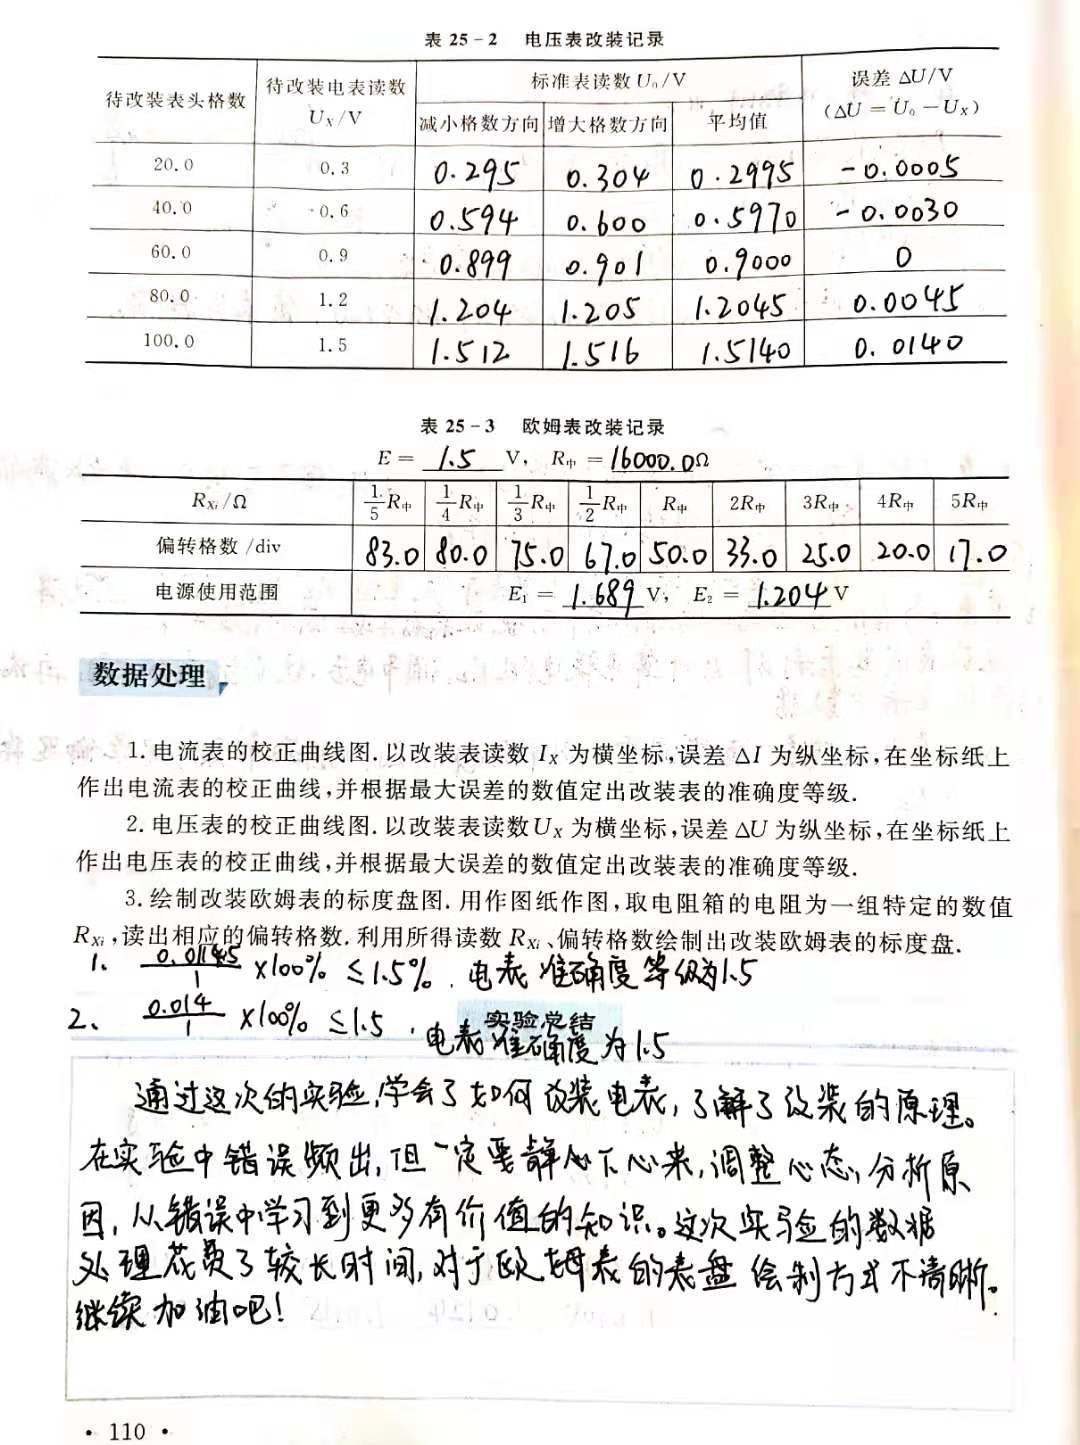 表 25-2 电压表改装记录
待改装表头格数 待改装电表读数 Uₓ/V 标准表读数 U₀/V 误差 ΔU/V (ΔU = U₀ - Uₓ)
减小格数方向 增大格数方向 平均值
20.0 0.3 0.295 0.304 0.2995 -0.0005
40.0 0.6 0.594 0.600 0.5970 -0.0030
60.0 0.9 0.899 0.901 0.9000 0
80.0 1.2 1.204 1.205 1.2045 0.0045
100.0 1.5 1.512 1.516 1.5140 0.0140
表 25-3 欧姆表改装记录
E = 1.5 V, R中 = 16000.0Ω
Rxi/Ω 1/5R中 1/4R中 1/3R中 1/2R中 R中 2R中 3R中 4R中 5R中
偏转格数/div 83.0 80.0 75.0 67.0 50.0 33.0 25.0 20.0 17.0
电源使用范围 E₁ = 1.689 V, E₂ = 1.204 V
数据处理
1. 电流表的校正曲线图. 以改装表读数 Iₓ 为横坐标,误差 ΔI 为纵坐标,在坐标纸上
作出电流表的校正曲线,并根据最大误差的数值定出改装表的准确度等级.
2. 电压表的校正曲线图. 以改装表读数Uₓ 为横坐标,误差 ΔU 为纵坐标,在坐标纸上
作出电压表的校正曲线,并根据最大误差的数值定出改装表的准确度等级.
3. 绘制改装欧姆表的标度盘图. 用作图纸作图,取电阻箱的电阻为一组特定的数值
Rxi,读出相应的偏转格数. 利用所得读数 Rxi、偏转格数绘制出改装欧姆表的标度盘.
1、 /1 ×100% ≤1.5%. 电表准确度等级为1.5
2、 0.014/1 ×100% ≤1.5 . 电表准确度为1.5
实验总结
通过这次的实验,学会了如何改装电表,了解了改装的原理。
在实验中错误频出,但一定要静心下心来,调整心态,分析原
因,从错误中学习到更多有价值的知识。这次实验的数据
处理花费了较长时间,对于欧姆表的表盘绘制方式不清晰。
继续加油吧!
· 110 ·